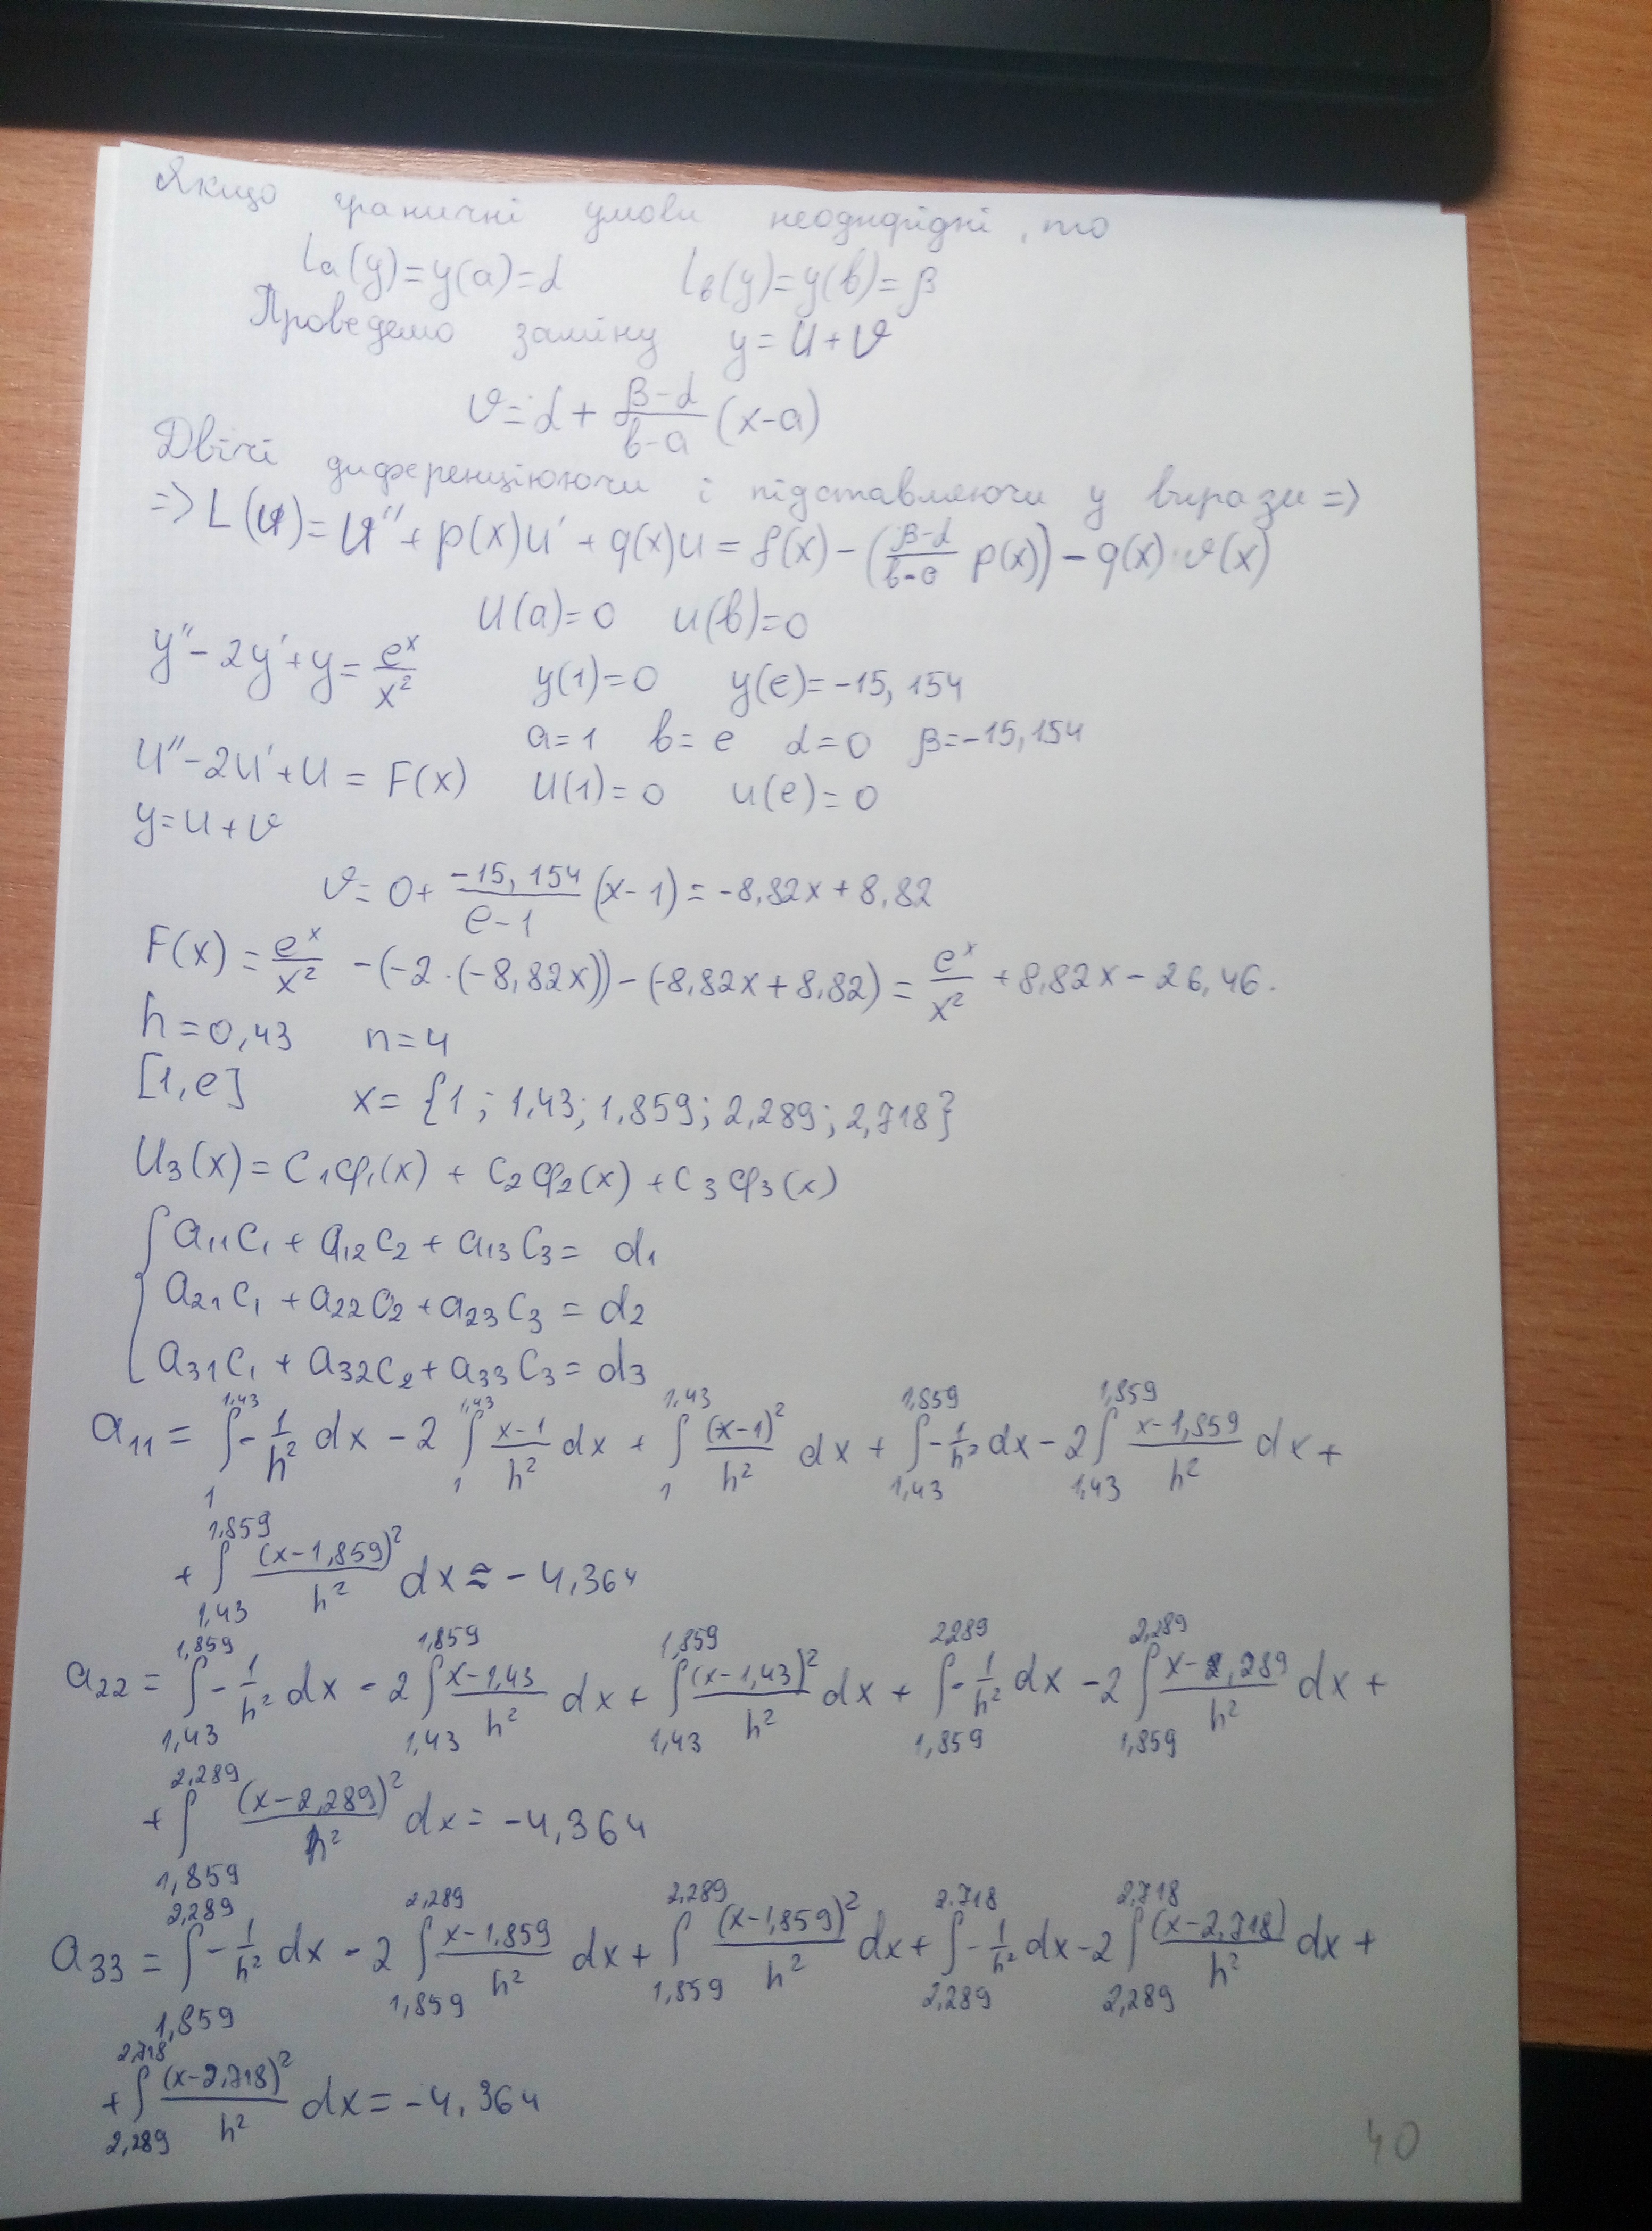 Якщо граничні умови неоднорідні, то
lₐ(y)=y(a)=α l_в(y)=y(в)=β
Проведемо заміну y=u+v
v=α+(β-α)/(в-a) (x-a)
Двічі диференціюючи і підставляючи у вирази =>
=> L(u)=u''+p(x)u'+q(x)u=f(x)-((β-α)/(в-a) p(x))-q(x)·v(x)
u(a)=0 u(в)=0
y''-2y'+y=eˣ/x² y(1)=0 y(e)=-15,154
a=1 в=e α=0 β=-15,154
u''-2u'+u=F(x) u(1)=0 u(e)=0
y=u+v
v=0+(-15,154)/(e-1) (x-1)=-8,82x+8,82
F(x)=eˣ/x² -(-2·(-8,82x))-(-8,82x+8,82)=eˣ/x² +8,82x-26,46.
h=0,43 n=4
[1,e] x={1; 1,43; 1,859; 2,289; 2,718}
u₃(x)=c₁φ₁(x)+c₂φ₂(x)+c₃φ₃(x)
{ a₁₁c₁+a₁₂c₂+a₁₃c₃=d₁
a₂₁c₁+a₂₂c₂+a₂₃c₃=d₂
a₃₁c₁+a₃₂c₂+a₃₃c₃=d₃
a₁₁=∫₁^1,43 -1/h² dx-2∫₁^1,43 (x-1)/h² dx+∫₁^1,43 (x-1)²/h² dx+∫_1,43^1,859 -1/h² dx-2∫_1,43^1,859 (x-1,859)/h² dx+
+∫_1,43^1,859 (x-1,859)²/h² dx≈-4,364
a₂₂=∫_1,43^1,859 -1/h² dx-2∫_1,43^1,859 (x-1,43)/h² dx+∫_1,43^1,859 (x-1,43)²/h² dx+∫_1,859^2289 -1/h² dx-2∫_1,859^2,289 (x-2,289)/h² dx+
+∫_1,859^2,289 (x-2,289)²/h² dx=-4,364
a₃₃=∫_1,859^2,289 -1/h² dx-2∫_1,859^2,289 (x-1,859)/h² dx+∫_1,859^2,289 (x-1,859)²/h² dx+∫_2,289^2,718 -1/h² dx-2∫_2,289^2,718 (x-2,718)/h² dx+
+∫_2,289^2,718 (x-2,718)²/h² dx=-4,364
40